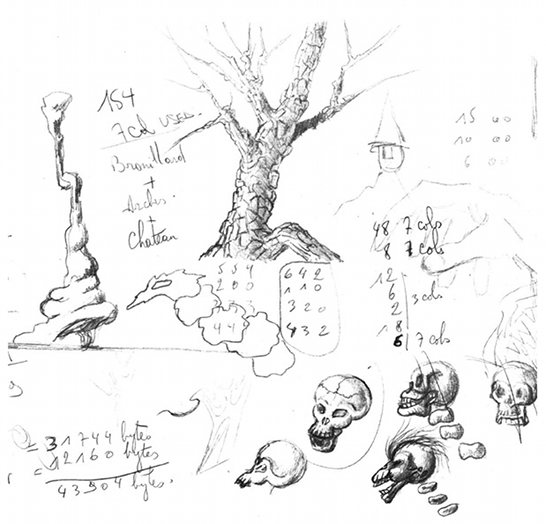 154
7 col used
Brouillard
+
Arches
+
Chateau
15 00
10 00
6 00
48 7 cols
8 7 cols
12
6 3 cols
2
18
6 7 cols
554
200
44
642
110
320
432
= 31744 bytes
= 12160 bytes
43904 bytes.